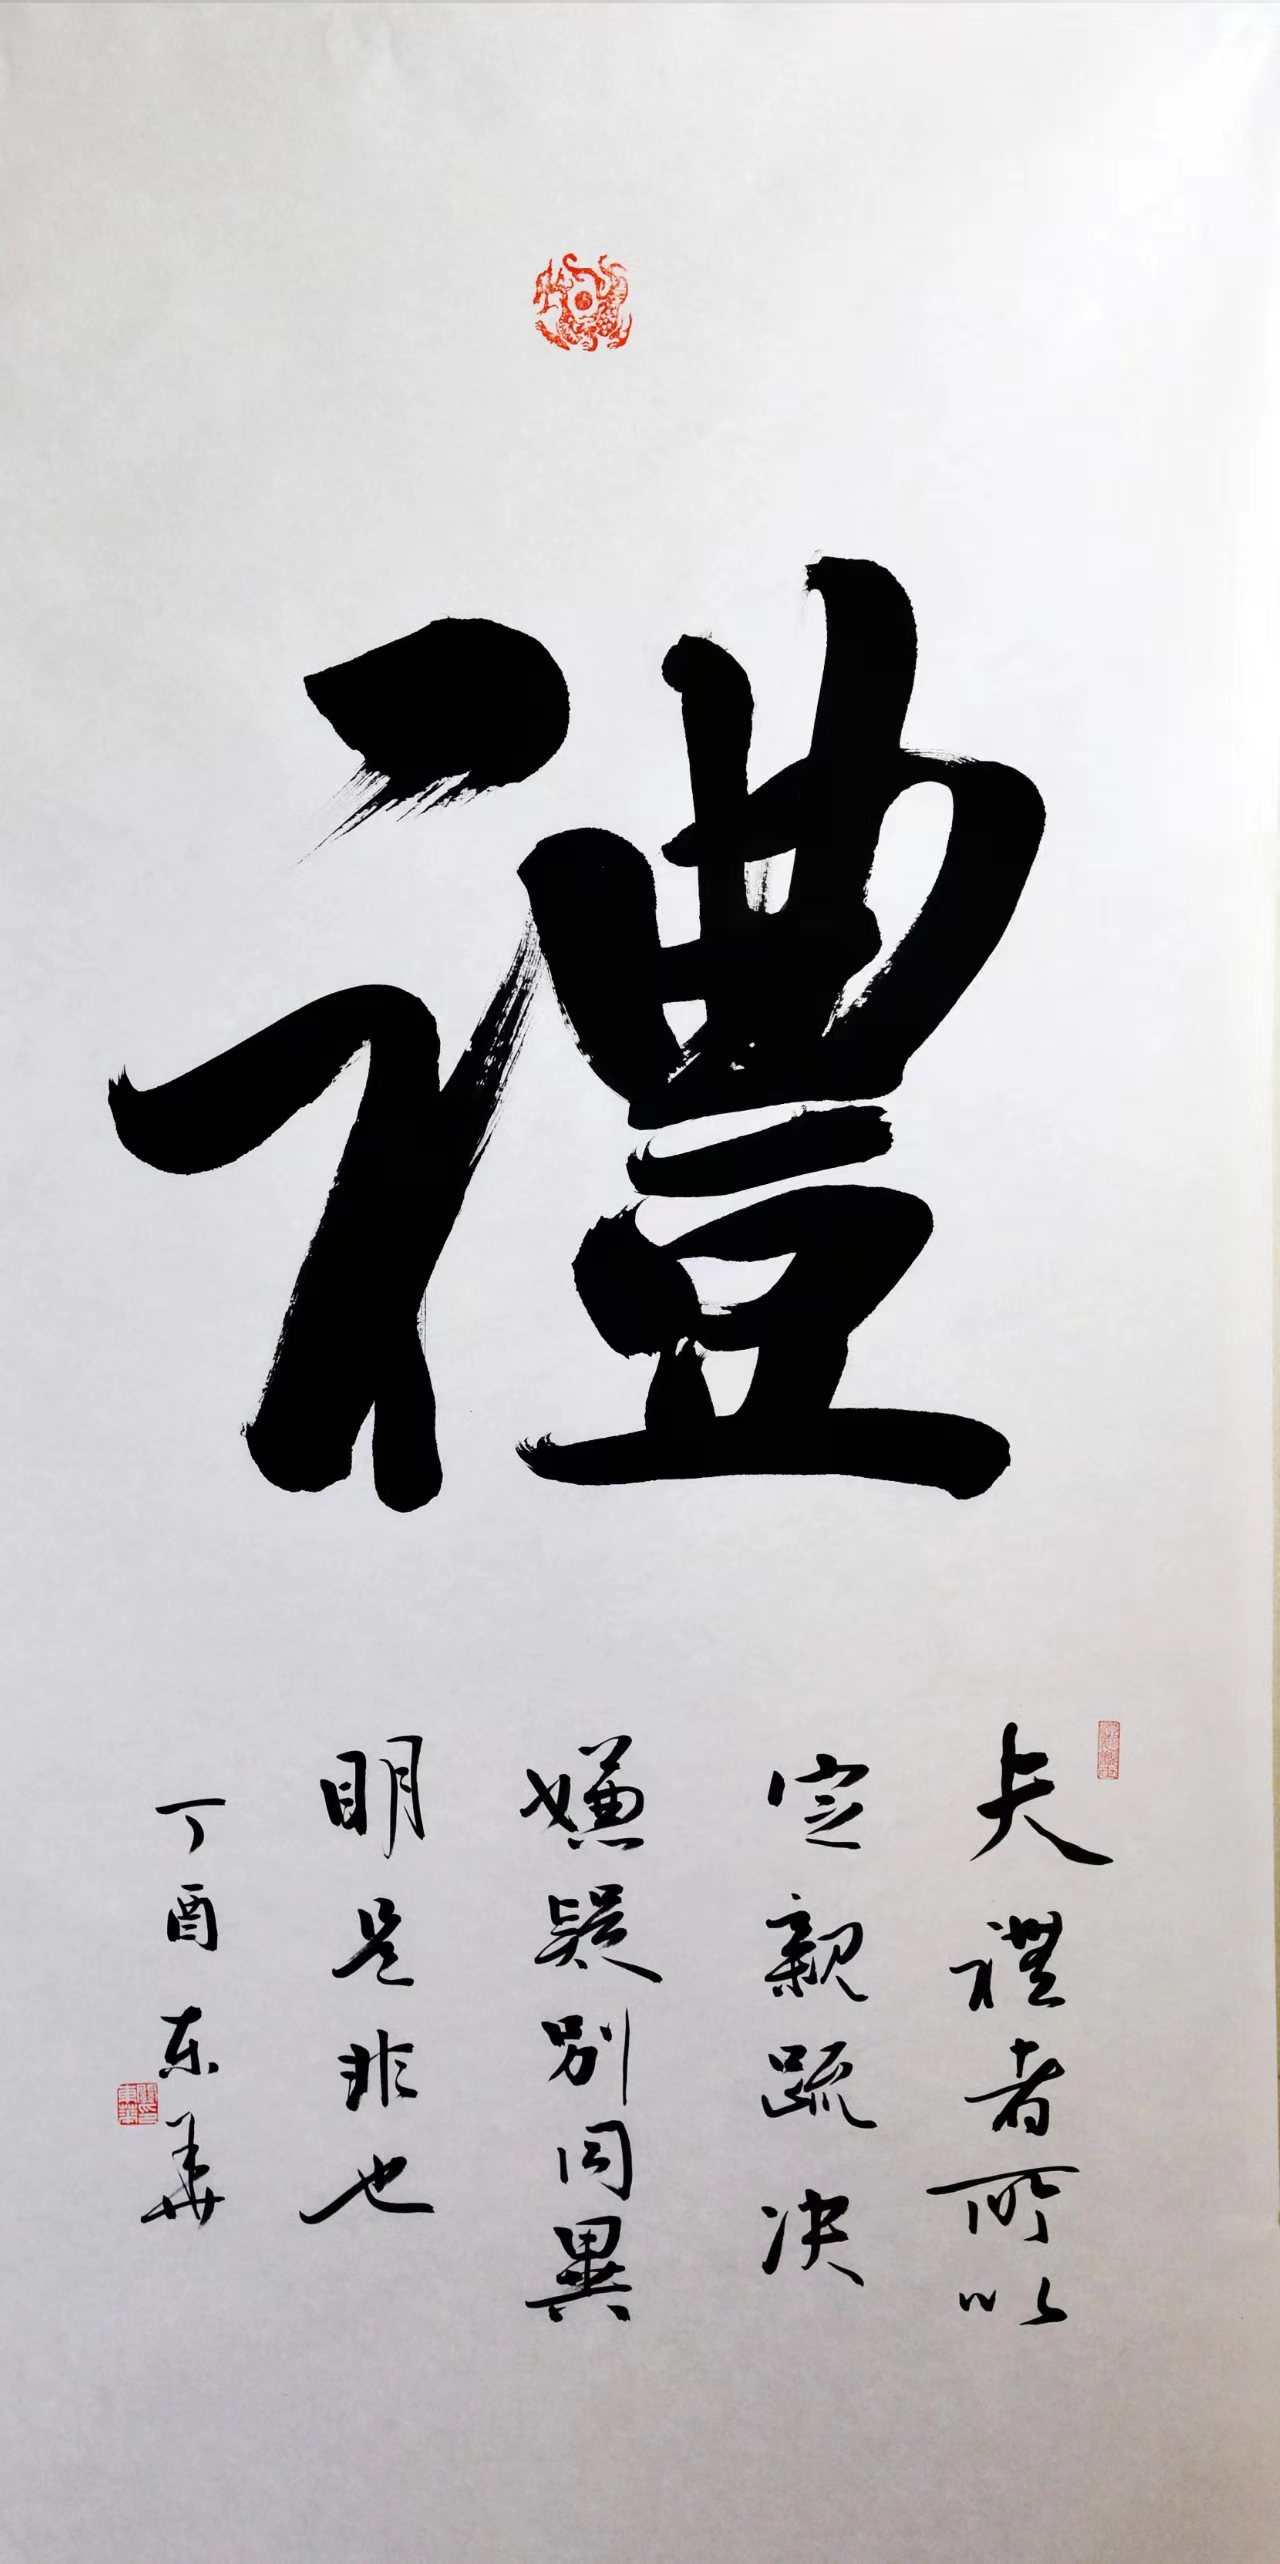 禮
夫禮者所以
定親疏決
嫌疑別同異
明是非也
丁酉東華